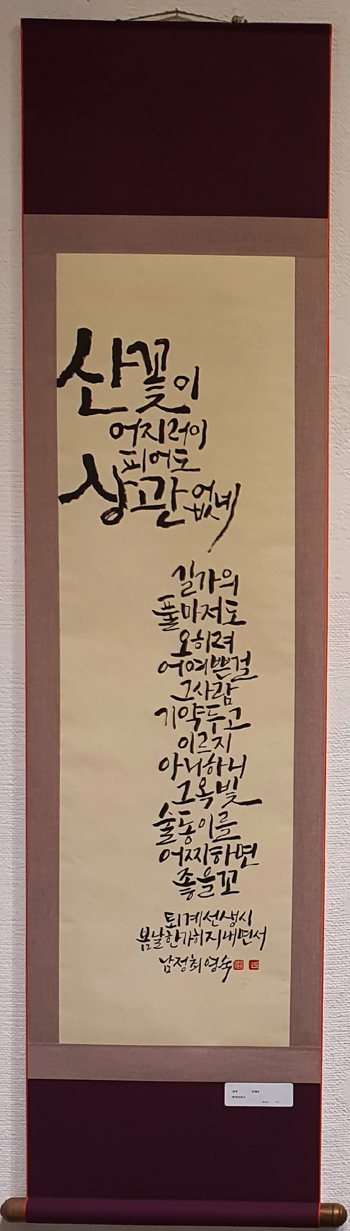 산꽃이
어지러이
피어도
상관없네
길가의
풀마저도
오히려
어여쁜걸
그사람
기약두고
이르지
아니하니
그옥빛
술동이를
어찌하면
좋을꼬
퇴계선생시
봄날한가히지내면서
남정최영숙